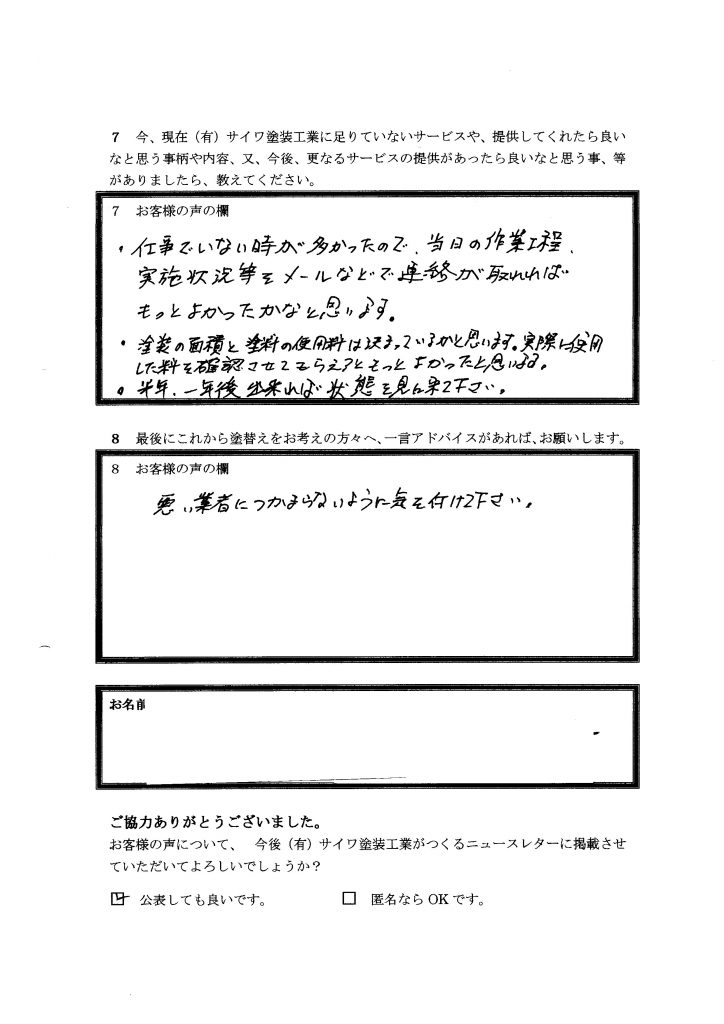 7 今、現在（有）サイワ塗装工業に足りていないサービスや、提供してくれたら良い
なと思う事柄や内容、又、今後、更なるサービスの提供があったら良いなと思う事、等
がありましたら、教えてください。
7 お客様の声の欄
・仕事でいない時が多かったので、当日の作業工程、
実施状況等をメールなどで連絡が取れれば
もっとよかったかなと思います。
・塗装の面積と塗料の使用料は決まっているかと思います。実際に使用
した料を確認させてもらえるともっとよかったと思います。
・半年、一年後出来れば状態を見に来て下さい。
8 最後にこれから塗替えをお考えの方々へ、一言アドバイスがあれば、お願いします。
8 お客様の声の欄
悪い業者につかまらないように気を付けて下さい。
お名前
ご協力ありがとうございました。
お客様の声について、 今後（有）サイワ塗装工業がつくるニュースレターに掲載させ
ていただいてよろしいでしょうか？
☑ 公表しても良いです。 □ 匿名なら OK です。